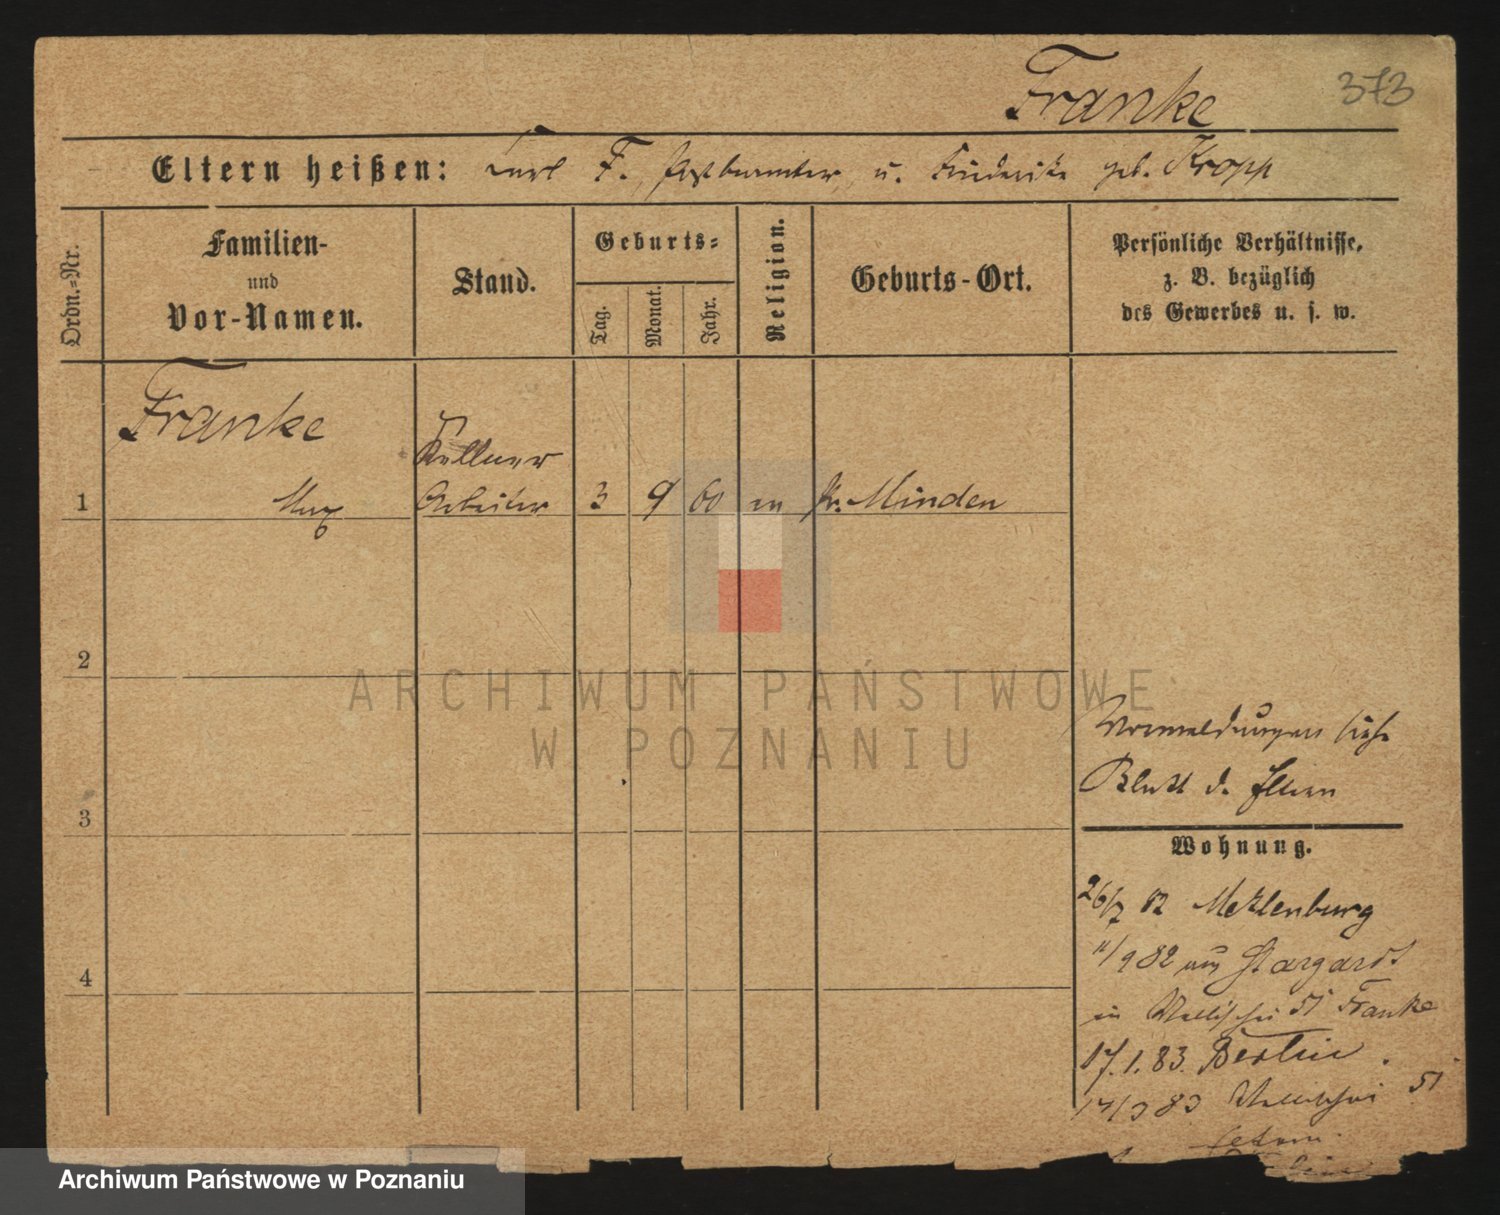 Franke 373
Eltern heißen: Carl F., Postbeamter, u. Friederike geb. Kropp
Ordn.-Nr.
Familien-
und
Vor-Namen.
Stand.
Geburts-
Tag.
Monat.
Jahr.
Religion.
Geburts-Ort.
Persönliche Verhältnisse,
z. B. bezüglich
des Gewerbes u. s. w.
Franke
Kellner
1 Max Arbeiter 3 9 60 Pr. Minden
2
3
4
Vormeldungen siehe
Blatt d. Eltern
Wohnung.
26/7 82 Meklenburg
11/9 82 aus Stargardt
in Wallischei 51 Franke
17.1.83. Berlin
17/3 83 Wallischei 51
ARCHIWUM PAŃSTWOWE
W POZNANIU
Archiwum Państwowe w Poznaniu